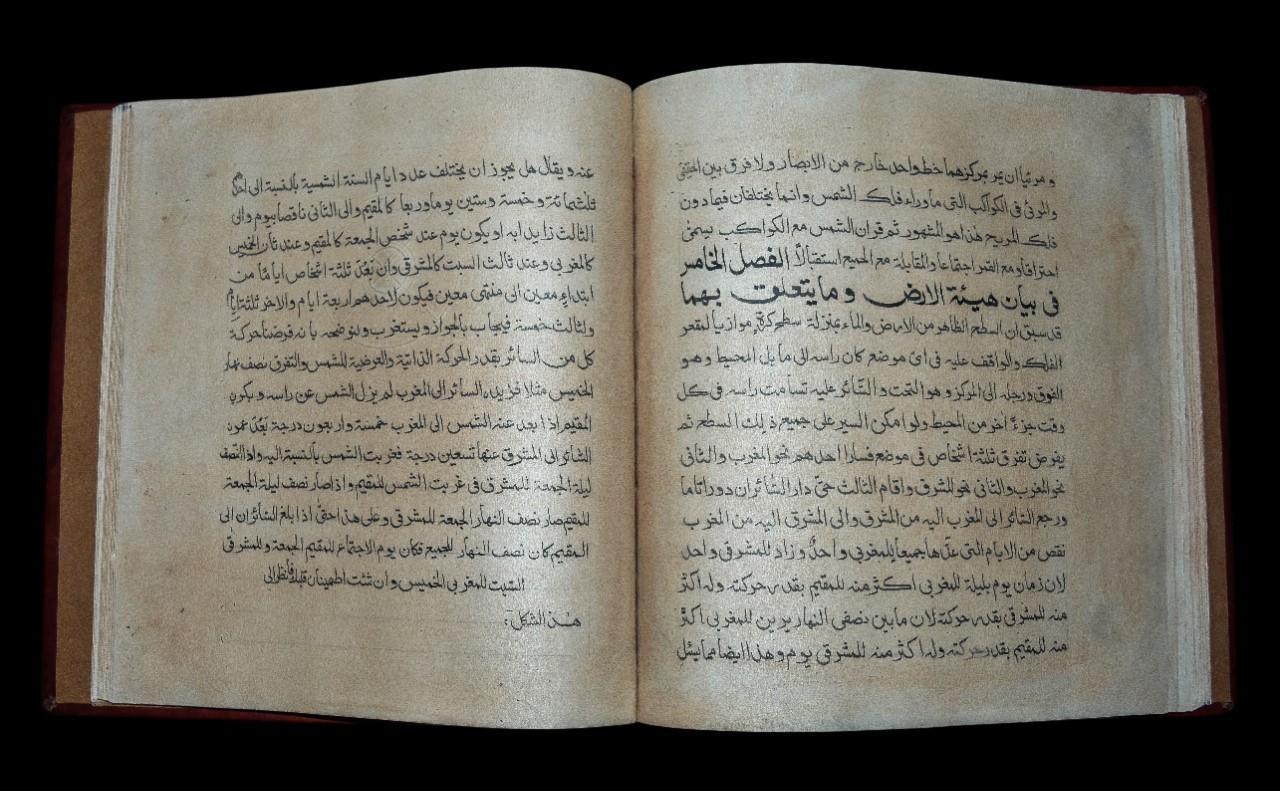 و مرئيا ان يمر بمركزهما خط واحد خارج من الابصار ولا فرق بين الحقيقى
والمرئى فى الكواكب التى ما وراء فلك الشمس وانما يختلفان فيما دون
فلك المريخ هذا هو المشهور ثم قران الشمس مع الكواكب يسمى
احتراقا ومع القمر اجتماعا والمقابلة مع الجميع استقبالا الفصل الخامس
فى بيان هيئة الارض وما يتعلق بهما
قد سبق ان السطح الظاهر من الارض والماء بمنزلة سطح كرة موازيا لمقعر
الفلك والواقف عليه فى اى موضع كان راسه الى ما يلى المحيط وهو
الفوق ورجله الى المركز وهو التحت والسائر عليه تسامت راسه فى كل
وقت جزءً آخر من المحيط ولو امكن السير على جميع ذلك السطح ثم
يفرض تفرق ثلثة اشخاص فى موضع فسار احدهم نحو المغرب والثانى
نحو المغرب والثانى نحو المشرق واقام الثالث حتى دار السائران دورا تاما
ورجع السائر الى المغرب اليه من المشرق والى المشرق اليه من المغرب
نقص من الايام التى عدّها جميعا للمغربى واحدٌ وزاد للمشرقى واحد
لان زمان يوم بليلة للمغربى اكثر منه للمقيم بقدر حركته وله اكثر
منه للمشرقى بقدر حركته لان ما بين نصفى النهار يرين للمغربى اكثر
منه للمقيم بقدر حركته وله اكثر منه للمشرقى يوم وهذا ايضا مما يسئل
عنه ويقال هل يجوز ان يختلف عدد ايام السنة الشمسية بالنسبة الى احدٍ
ثلثمائة وخمسة وستين يوما وربعا كالمقيم والى الثانى ناقصا بيوم والى
الثالث زايدا به او يكون يوم عند شخص الجمعة كالمقيم وعند ثان الخميس
كالمغربى وعند ثالث السبت كالمشرقى وان بَعُدَ ثلثة اشخاص اياما من
ابتداءٍ معين الى منتهى معين فيكون لاحدهم اربعة ايام والاخر ثلثة ايام
ولثالث خمسة فيجاب بالجواز ويستغرب ولنوضحه بانه فرضنا حركة
كل من السائر بقدر الحركة الذاتية والعرضية للشمس والتفرق نصف نهار
الخميس مثلا السائر الى المغرب لم يزل الشمس عن راسه ويكون
المقيم اذا بعد عنه الشمس الى المغرب خمسة واربعون درجة بَعُدَ عن
السائر الى المشرق عنها تسعين درجة فغربت الشمس بالنسبة اليه واذا انتصف
ليلة الجمعة للمشرقى غربت الشمس للمقيم واذا صار نصف ليلة الجمعة
للمقيم صار نصف النهار الجمعة للمشرقى وعلى هذا حتى اذا بلغ السائران الى
المقيم كان نصف النهار للجميع فكان يوم الاجتماع للمقيم الجمعة وللمشرقى
السبت للمغربى الخميس وان شئت اطمينان قلبك فانظر الى
هذا الشكل